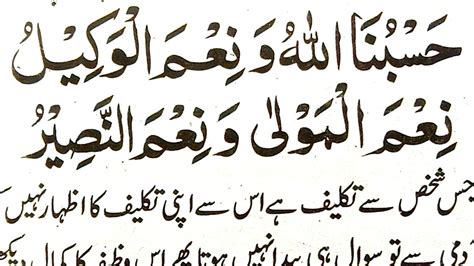 حَسْبُنَا اللّٰهُ وَنِعْمَ الْوَكِيْلُ
نِعْمَ الْمَوْلٰى وَنِعْمَ النَّصِيْرُ
جس شخص سے تکلیف ہے اس سے اپنی تکلیف کا اظہار نہیں
سے تو سوال ہی پیدا نہیں ہوتا پھر اس وظیفہ کا کمال